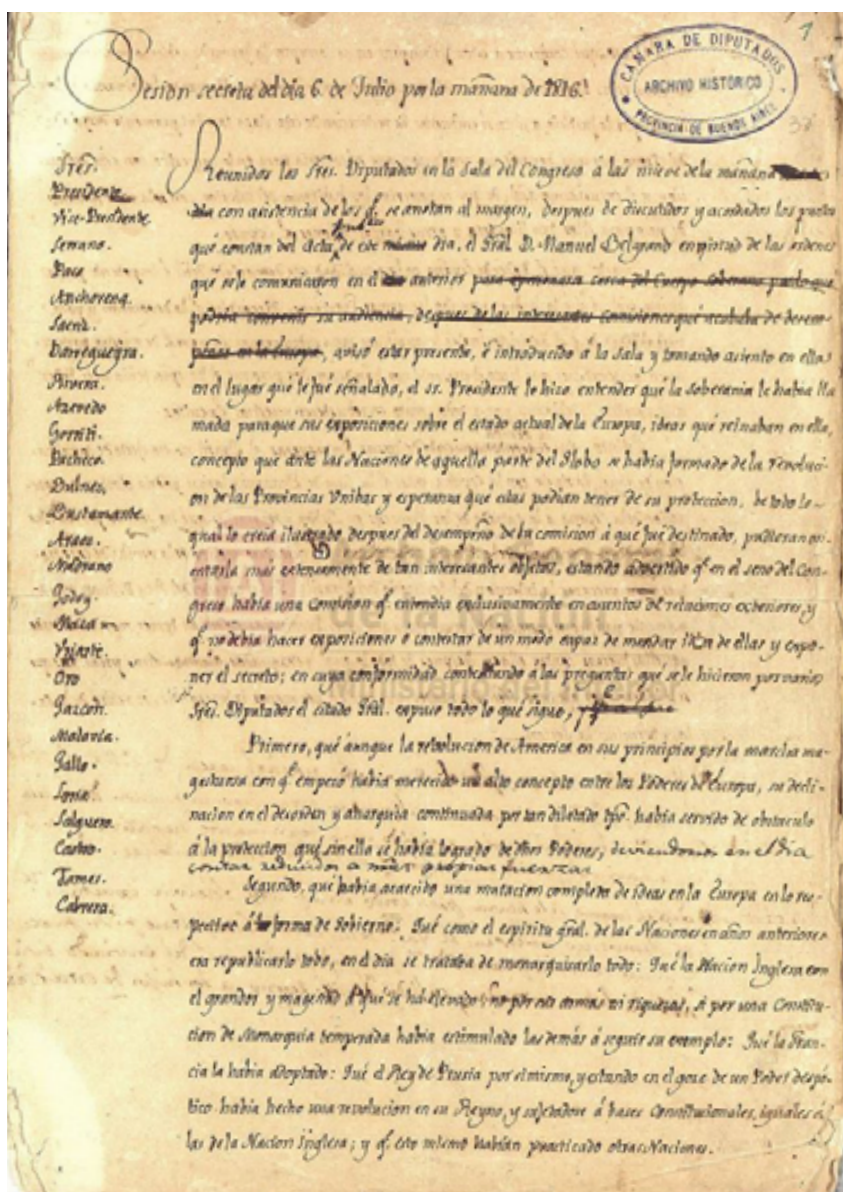 1
CAMARA DE DIPUTADOS
ARCHIVO HISTORICO
PROVINCIA DE BUENOS AIRES
Sesion secreta del dia 6. de Julio por la mañana de 1816.
Sres.
Presidente
Vice-Presidente
Serrano.
Paso
Anchorena
Saenz.
Darregueyra.
Rivera.
Azevedo
Gorriti.
Pacheco.
Bulnes.
Bustamante.
Araoz.
Medrano
Godoy
Maza
Uriarte.
Oro
Gazcon.
Malavia.
Gallo.
Loria
Salguero.
Castro.
Tames.
Cabrera.
Reunidos los Sres. Diputados en la Sala del Congreso á las nueve de la mañana
dia con asistencia de los q.e se anotan al margen, despues de discutidos y acordados los puntos
qué constan del Acta de este dia, el Gral. D. Manuel Belgrano en virtud de las ordenes
qué se le comunicaron en el dia anterior para
podria su audiencia, despues de las interesantes que acababa de desem-
peñar en la Europa, avisó estar presente, é introducido á la Sala y tomando asiento en ella
en el lugar qué le fué señalado, el sr. Presidente le hizo entender qué la soberania le habia lla
mado para que sus exposiciones sobre el estado actual de la Europa, ideas qué reinaban en ella,
concepto que ante las Naciones de aquella parte del Globo se había formado de la revoluci-
on de las Provincias Unidas y esperanza qué estas podian tener de su proteccion, de todo lo
qual lo creia ilustrado despues del desempeño de la comision á qué fué destinado, pudieran ori-
entarla más extensamente de tan interesantes objetos, estando advertido q.e en el seno del Con-
greso había una Comision q.e entendia exclusivamente en cuentos de relaciones exteriores, y
q.e no debía hacer exposiciones ó contestar de un modo capaz de mandar idea de ellas y expo-
ner el secreto; en cuya conformidad contestando á las preguntas qué se le hicieron por varios
Sres. Diputados el citado Gral. expuso todo lo qué sigue,
Primero, qué aunque la revolucion de America en sus principios por la marcha ma-
gestuosa con q.e empezó habia merecido un alto concepto entre los Poderes de Europa, su decli-
nacion en el desorden y anarquia continuada por tan dilatado tpo. había servido de obstaculo
á la proteccion qué sin ella se habria logrado de dhos Poderes, deviendonos en el dia
contar reducidos a nuestras propias fuerzas
Segundo, qué había acaecido una mutacion completa de ideas en la Europa en lo res-
pectivo á la forma de Gobierno: Qué como el espiritu gral. de las Naciones en años anteriores
era republicarlo todo, en el dia se trataba de monarquizarlo todo: Qué la Nacion Inglesa con
el grandor y magestad á qué se ha elevado, no por sus armas ni riquezas, si por una Constitu-
cion de Monarquia temperada había estimulado las demás á seguir su exemplo: Qué la Fran-
cia la habia adoptado: Qué el Rey de Prusia por si mismo, y estando en el goce de un Poder despó-
tico habia hecho una revolucion en su Reyno, y sujetadose á bases Constitucionales, iguales á
las de la Nacion Inglesa; y q.e esto mismo habian practicado otras Naciones.